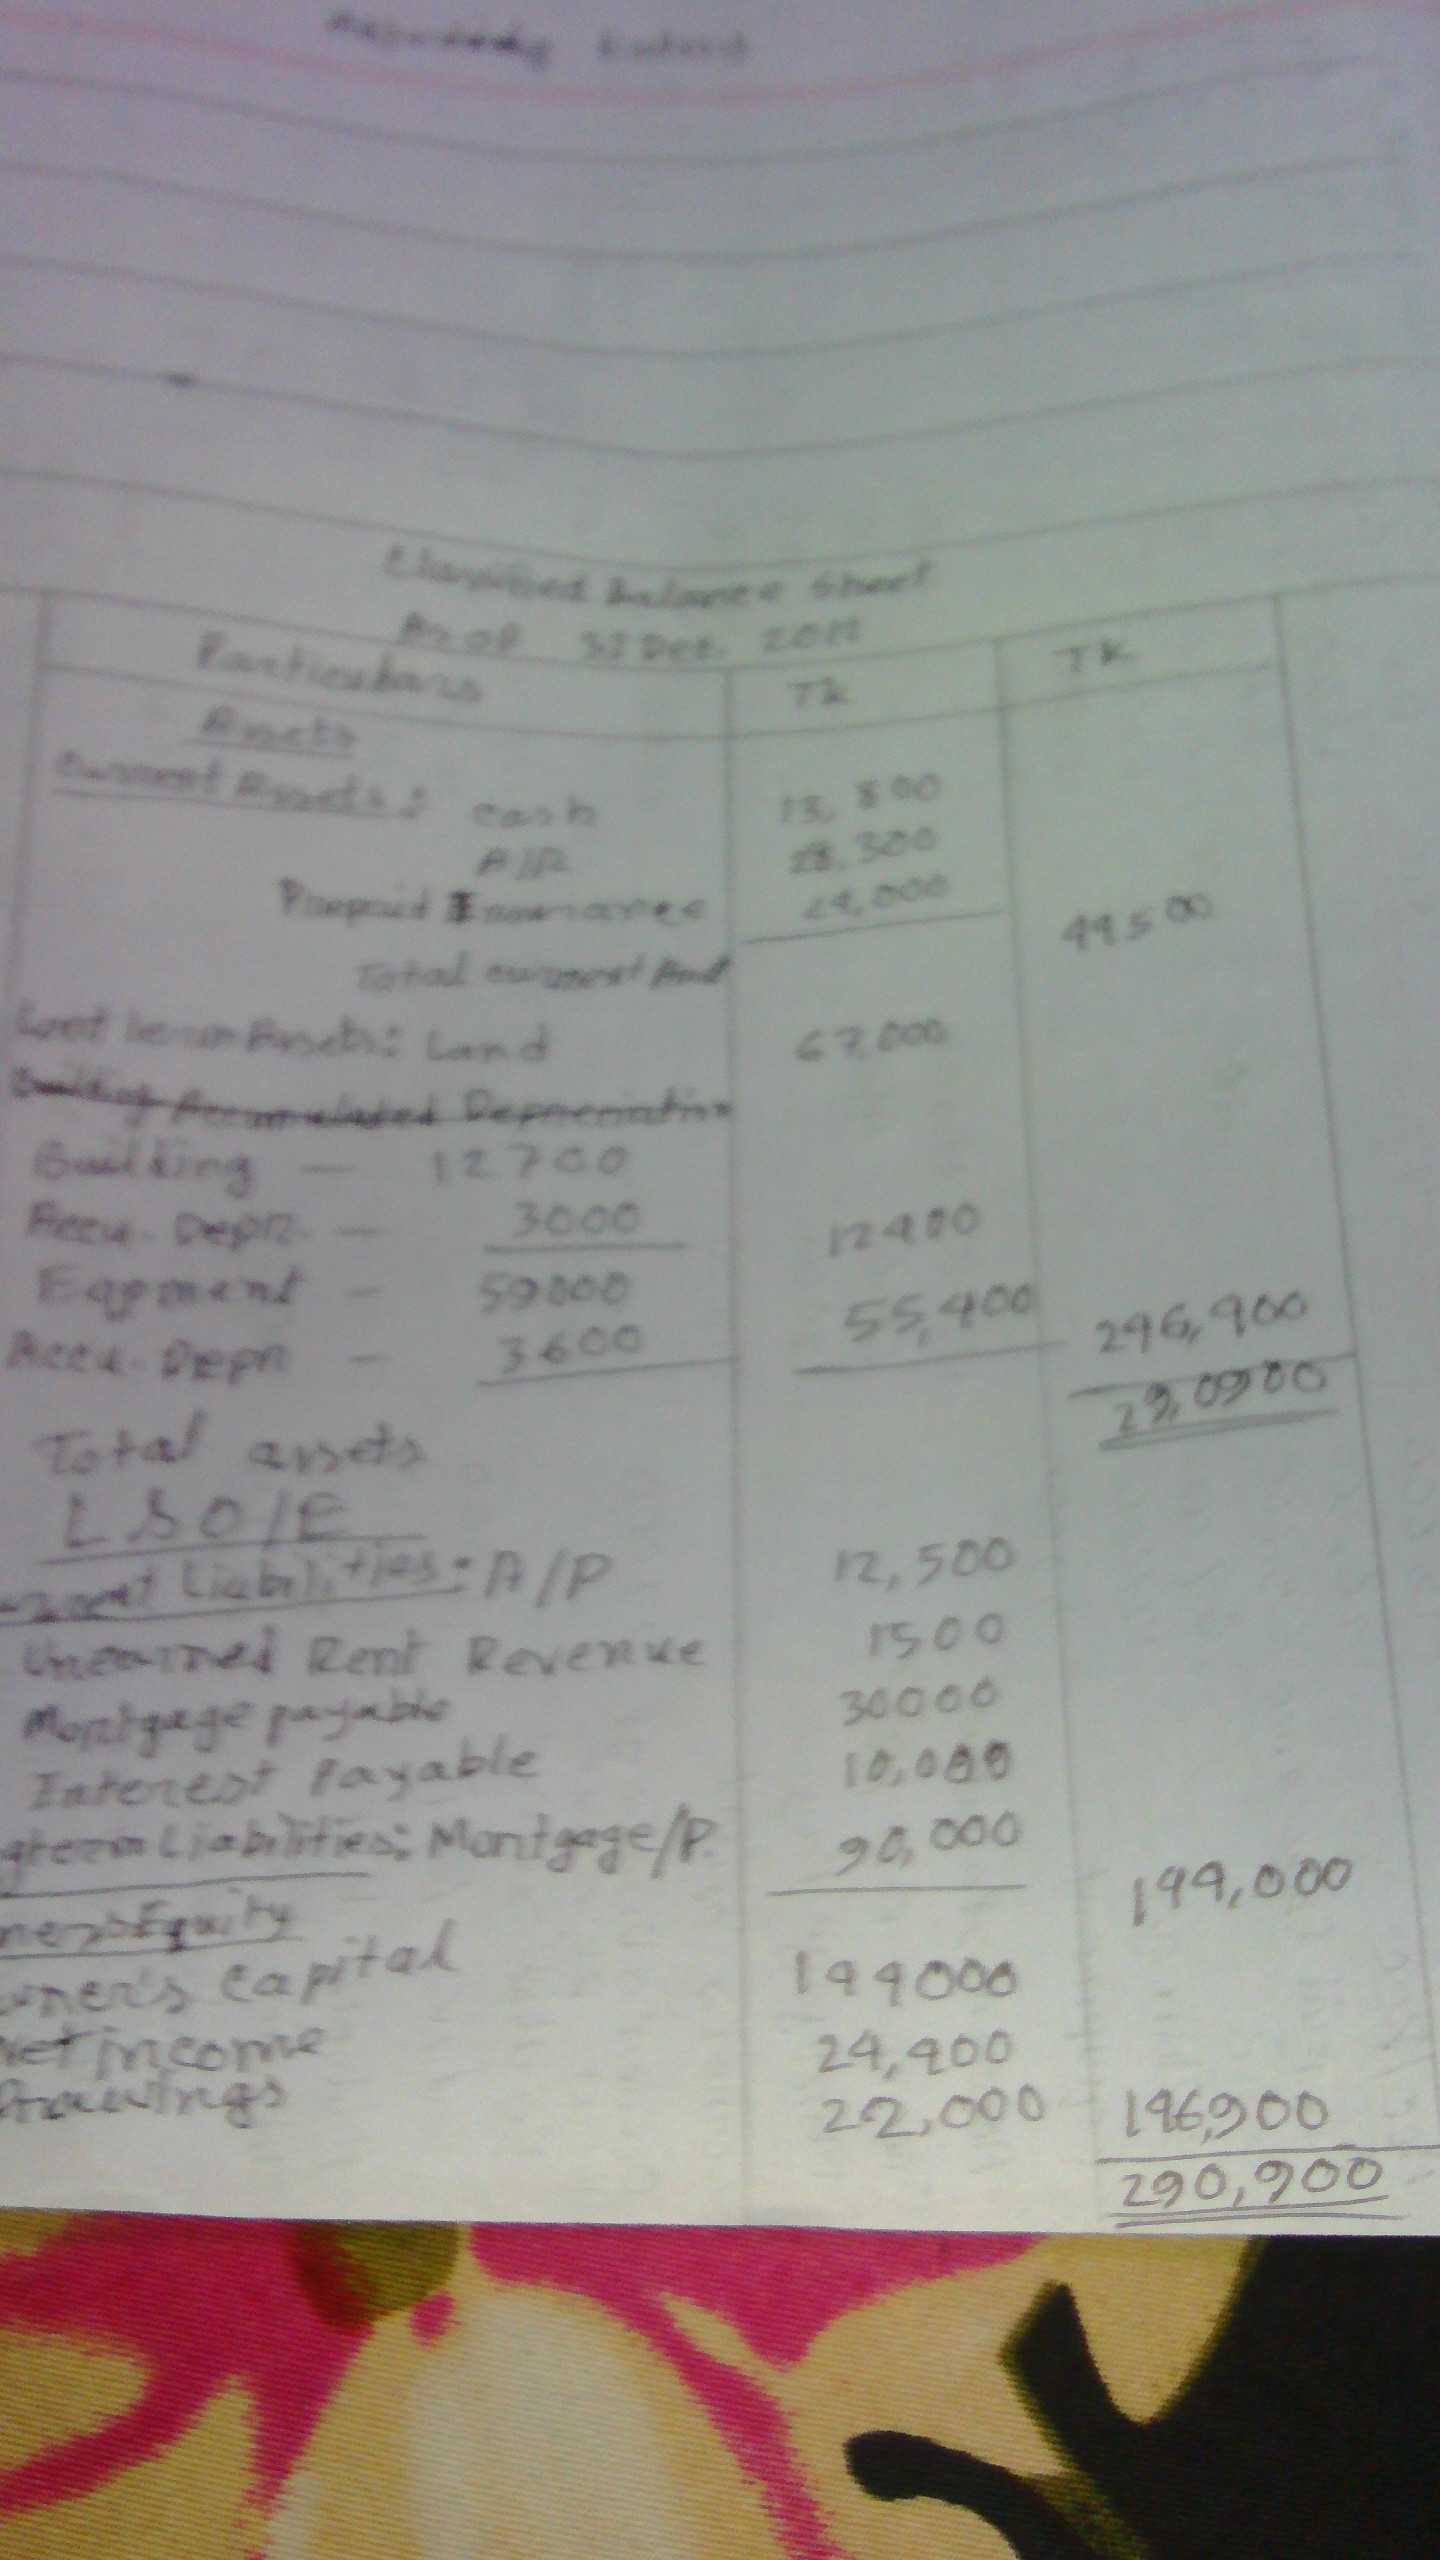 Classified Balance Sheet
As of 31 Dec. 2017
Particulars Tk Tk
Assets
Current Assets: Cash 13,800
A/R 28,300
Prepaid Insurance
Total current 44500
Assets: Land 67,000
Building Accumulated Depreciation
Building - 12700
Accu. Depn. - 3000 12400
Eqpment - 59000
Accu. Depn - 3600 55,400 246,400
Total assets 29,0900
L & O/E
Liabilities: A/P 12,500
Unearned Rent Revenue 1500
Mortgage payable 30000
Interest Payable 10,000
Liabilities: Mortgage/P. 90,000
144,000
Equity
Capital 144000
Net income 24,900
Drawings 22,000 146,900
290,900